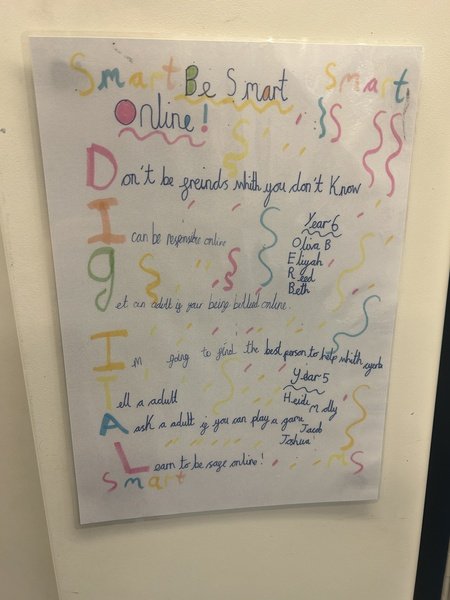 Smart Be Smart Smart
Online!
Don't be freinds whith you don't Know
I can be responsible online
Year 6
Oliva B
Eliyah
Reed
Beth
get an adult if your being bullied online.
Im going to find the best person to help whith
Year 5
Heidi Molly
Tell a adult
Aask a adult if you can play a game
Jacob
Joshua
Learn to be safe online!
Smart